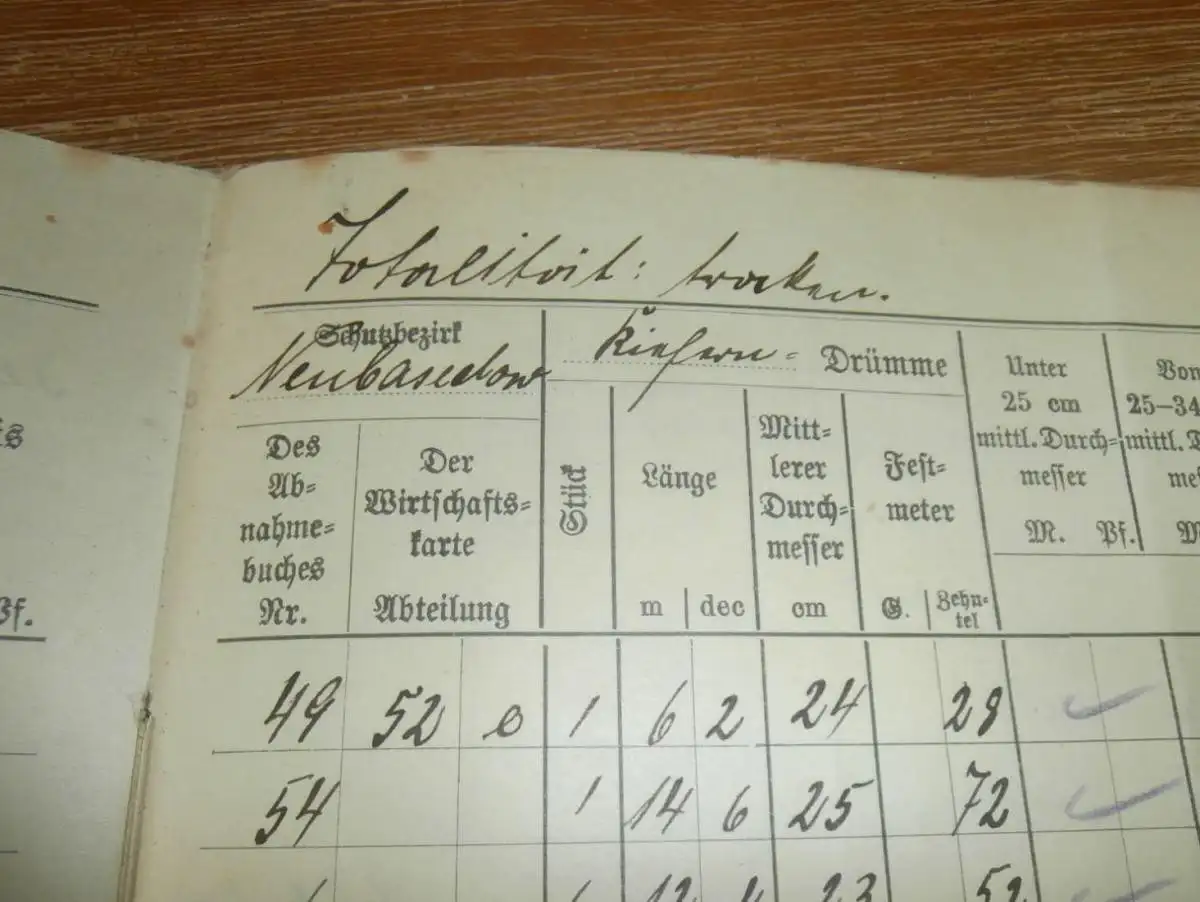 Totalität: trocken.
Schutzbezirk
Neubasedow
Kiefern- Drümme
Des
Ab-
nahme-
buches
Nr.
Der
Wirtschafts-
karte
Abteilung
Stück
Länge
m dec
Mitt-
lerer
Durch-
messer
cm
Fest-
meter
G. Zehn-
tel
Unter
25 cm
mittl. Durch-
messer
M. Pf.
Von
25-34
mittl. D
me
M
ts
Pf.
49 52 e 1 6 2 24 28
54 1 14 6 25 72
1 12 4 23 52